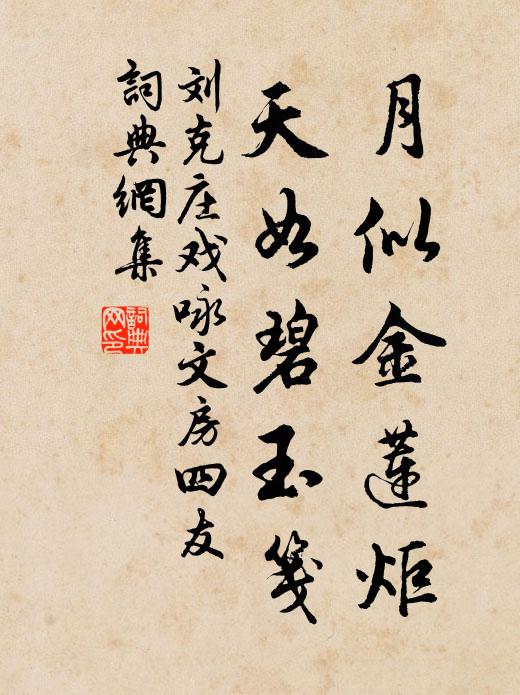 月似金莲炬
天如碧玉箋
刘克庄戏咏文房四友
詞典網集
詞典
网印